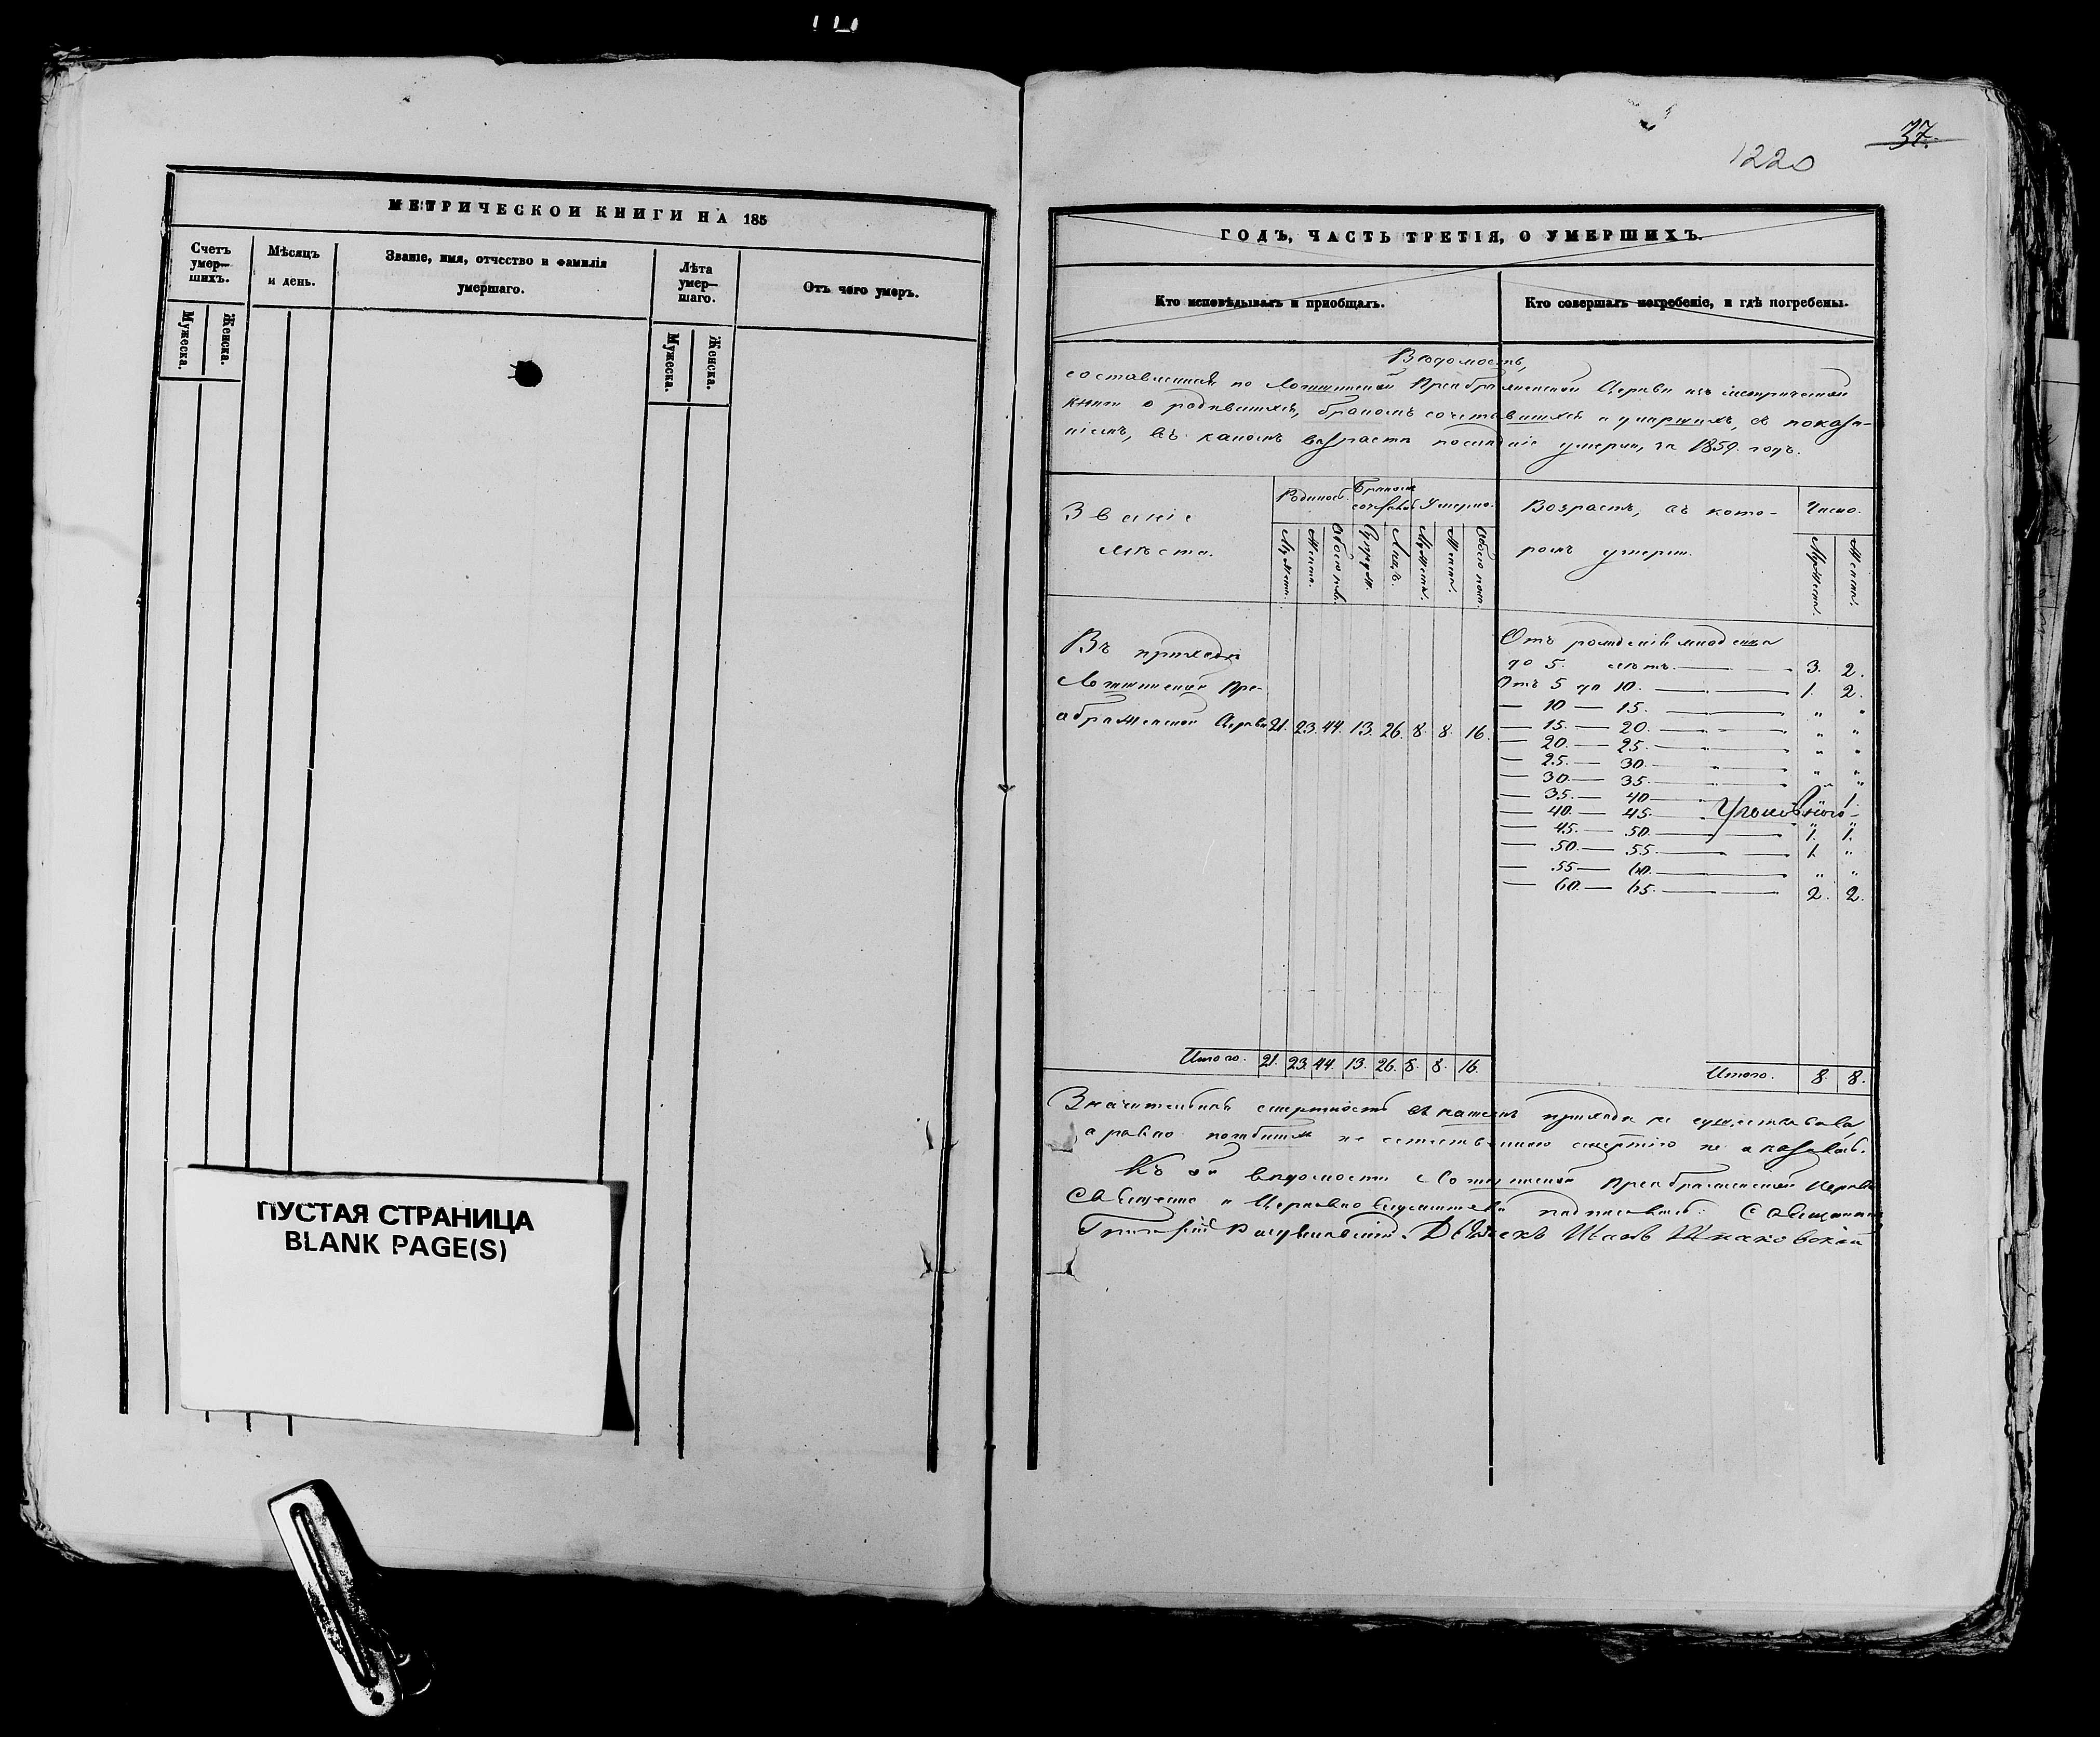 МЕТРИЧЕСКОЙ КНИГИ НА 185
Счетъ умер-шихъ.
Мужеска.
Женска.
Мѣсяцъ и день.
Званіе, имя, отчество и фамилія умершаго.
Лѣта умер-шаго.
Мужеска.
Женска.
Отъ чего умеръ.
ПУСТАЯ СТРАНИЦА
BLANK PAGE(S)
37.
1220
ГОДЪ, ЧАСТЬ ТРЕТІЯ, О УМЕРШИХЪ.
Кто исповѣдывалъ и пріобщалъ.
Кто совершалъ погребеніе, и гдѣ погребены.
Вѣдомость,
составленная по Преображенской Церкви изъ метрической
книги о родившихся, бракомъ сочетавшихся и умершихъ, съ показа-
ніемъ, въ какомъ возрастѣ послѣдніе умерли, за 1859. годъ.
Званіе мѣста.
Родилось.
Бракомъ
Умерло.
Возрастъ, въ кото-
ромъ умерли.
Число.
Въ приходѣ
Пре-
ображенской Церкви 21. 23. 44. 13. 26. 8. 8. 16.
Отъ рожденія младенца
до 5. лѣтъ. 3. 2.
Отъ 5 до 10. 1. 2.
— 10 — 15. " "
— 15. — 20. " "
— 20. — 25. " "
— 25. — 30. " "
— 30. — 35. " "
— 35. — 40 1.
— 40. — 45. " "
— 45. — 50. 1. 1.
— 50. — 55. 1. "
— 55 — 60. " "
— 60. — 65. 2. 2.
Итого. 21. 23. 44. 13. 26. 8. 8. 16.
Итого. 8. 8.
смертности въ нашемъ приходѣ не существовало
а равно погибшихъ не естественною смертію не оказалось.
Къ сей вѣдомости Преображенской Церкви
Священно и Церковнослужители подписались: Священникъ